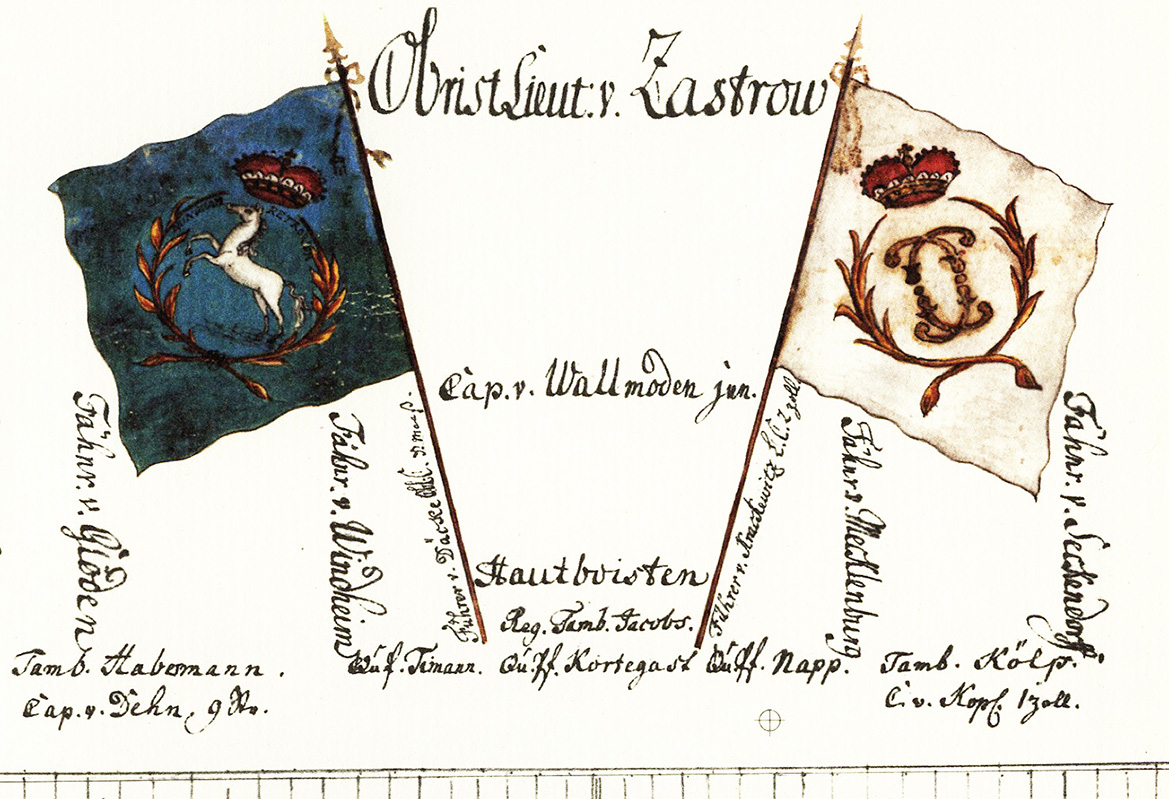 Obrist Lieut: v. Zastrow
NUNQUAM RETRORSUM
Cap. v. Wallmoden jun.
Fähnr. v. Gloden
Fähnr. v. Windheim
Führer v. Däcke
Führer v. Krackewitz 2 zoll
Fähnr. v. Mecklenburg
Fähnr. v. Seckendorff
Hautboisten
Reg. Tamb. Jacobs.
Tamb. Habermann.
Quf. Timann. Quff. Kortegast Quff. Napp.
Tamb. Kölp.
Cap. v. Dehn, 9
C. v. Kopf. 1 zoll.